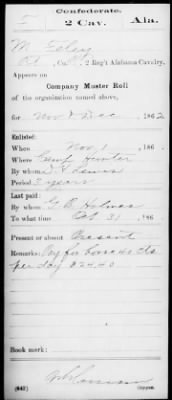 Confederate.
2 Cav. Ala.
M
Co. 2 Reg't Alabama Cavalry.
Appears on
Company Muster Roll
of the organization named above,
for Nov & Dec, 1862
Enlisted:
When Nov 1, 186 .
Where Camp Hunter
By whom
Period 3 years
Last paid:
By whom G. B. Holmes
To what time Oct 31, 186 .
Present or absent Present
Remarks: Pay for horse 40 cts
per day $24.40
Book mark:
(642)
Copyist.